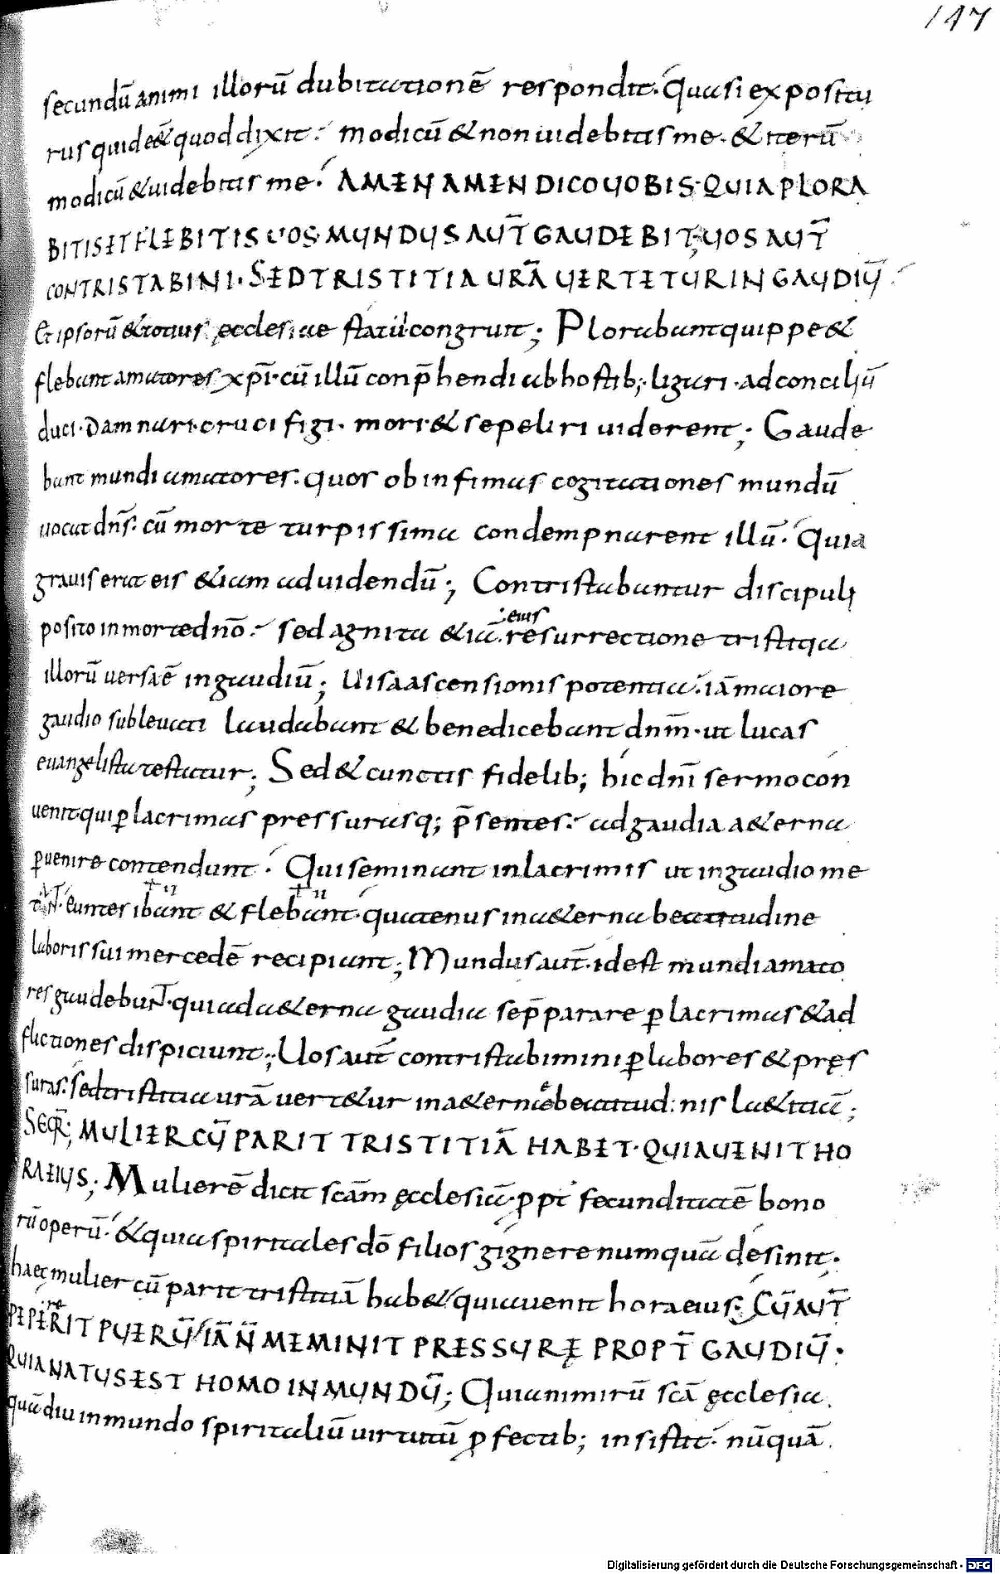 147
secundū animi illorū dubitationē respondit. Quasi expositu
rus quid eēt quod dixit. modicū & non uidebitis me. & iterū
modicū & uidebitis me. AMEN AMEN DICO VOBIS. QUIA PLORA
BITIS ET FLEBITIS VOS. MUNDUS AUT̄ GAUDEBIT; VOS AUT̄
CONTRISTABINI. SED TRISTITIA URĀ VERTETUR IN GAUDIŪ
Et ipsorū & totius ęcclesiae statui congruit; Plorabant quippe &
flebant amatores xp̄i. cū illū conp̄hendi ab hostib; ligari. ad conciliū
duci. Damnari. cruci figi. mori. & sepeliri uiderent; Gaude
bant mundi amatores. quos ob infimas cogitationes mundū
uocat dn̄s. cū morte turpissima condempnarent illū. Quia
grauis erat eis & iam ad uidendū; Contristabantur discipuli
posito in morte dn̄o. sed agnita & iā eius resurrectione tristitia
illorū uersa ē in gaudiū; Uisa ascensionis potentia. iā maiore
gaudio subleuati laudabant & benedicebant dn̄m. ut lucas
euangelista testatur; Sed & cunctis fidelib; hic dn̄i sermo con
uenit qui p̄ lacrimas pressurasq; p̄sentes. ad gaudia a&erna
p̄uenire contendunt. Qui seminant in lacrimis ut in gaudio me
tant. Euntes ibant & flebant. quatenus in a&erna beatitudine
laboris sui mercedē recipiant; Mundus aut̄. id est mundi amato
res gaudebunt. qui ad a&erna gaudia se p̄parare p̄ lacrimas & ad
flictiones dispiciunt; Uos aut̄ contristabimini p̄ labores & pręs
suras. sed tristitia urā uert&ur in a&ernę beatitudinis la&itiā;
SEQR̄; MULIER CŪ PARIT TRISTITIĀ HABET. QUIA VENIT HO
RA EIUS; Mulierē dicit scām ęcclesiā. p̄pt̄ fecunditatē bono
rū operū. & quia spiritales dō filios gignere numquā desinit.
haec mulier cū parit tristitiā hab& quia uenit hora eius; CŪ AUT̄
PEPERIT PUERŪ IĀ N̄ MEMINIT PRESSURĘ PROPT̄ GAUDIŪ.
QUIA NATUS EST HOMO IN MUNDŪ; Quia nimirū scā ęcclesia
quādiu in mundo spiritaliū uirtutū p̄fectib; insistit. nūquā
Digitalisierung gefördert durch die Deutsche Forschungsgemeinschaft - DFG